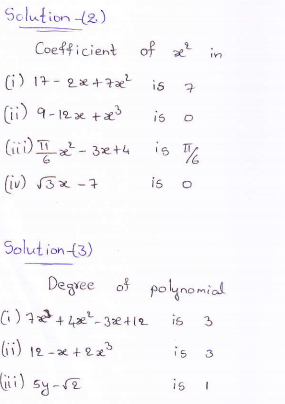 Solution-(2)
Coefficient of x² in
(i) 17 - 2x + 7x² is 7
(ii) 9 - 12x + x³ is 0
(iii) π/6 x² - 3x + 4 is π/6
(iv) √3x - 7 is 0
Solution-(3)
Degree of polynomial
(i) 7x³ + 4x² - 3x + 12 is 3
(ii) 12 - x + 2x³ is 3
(iii) 5y - √2 is 1